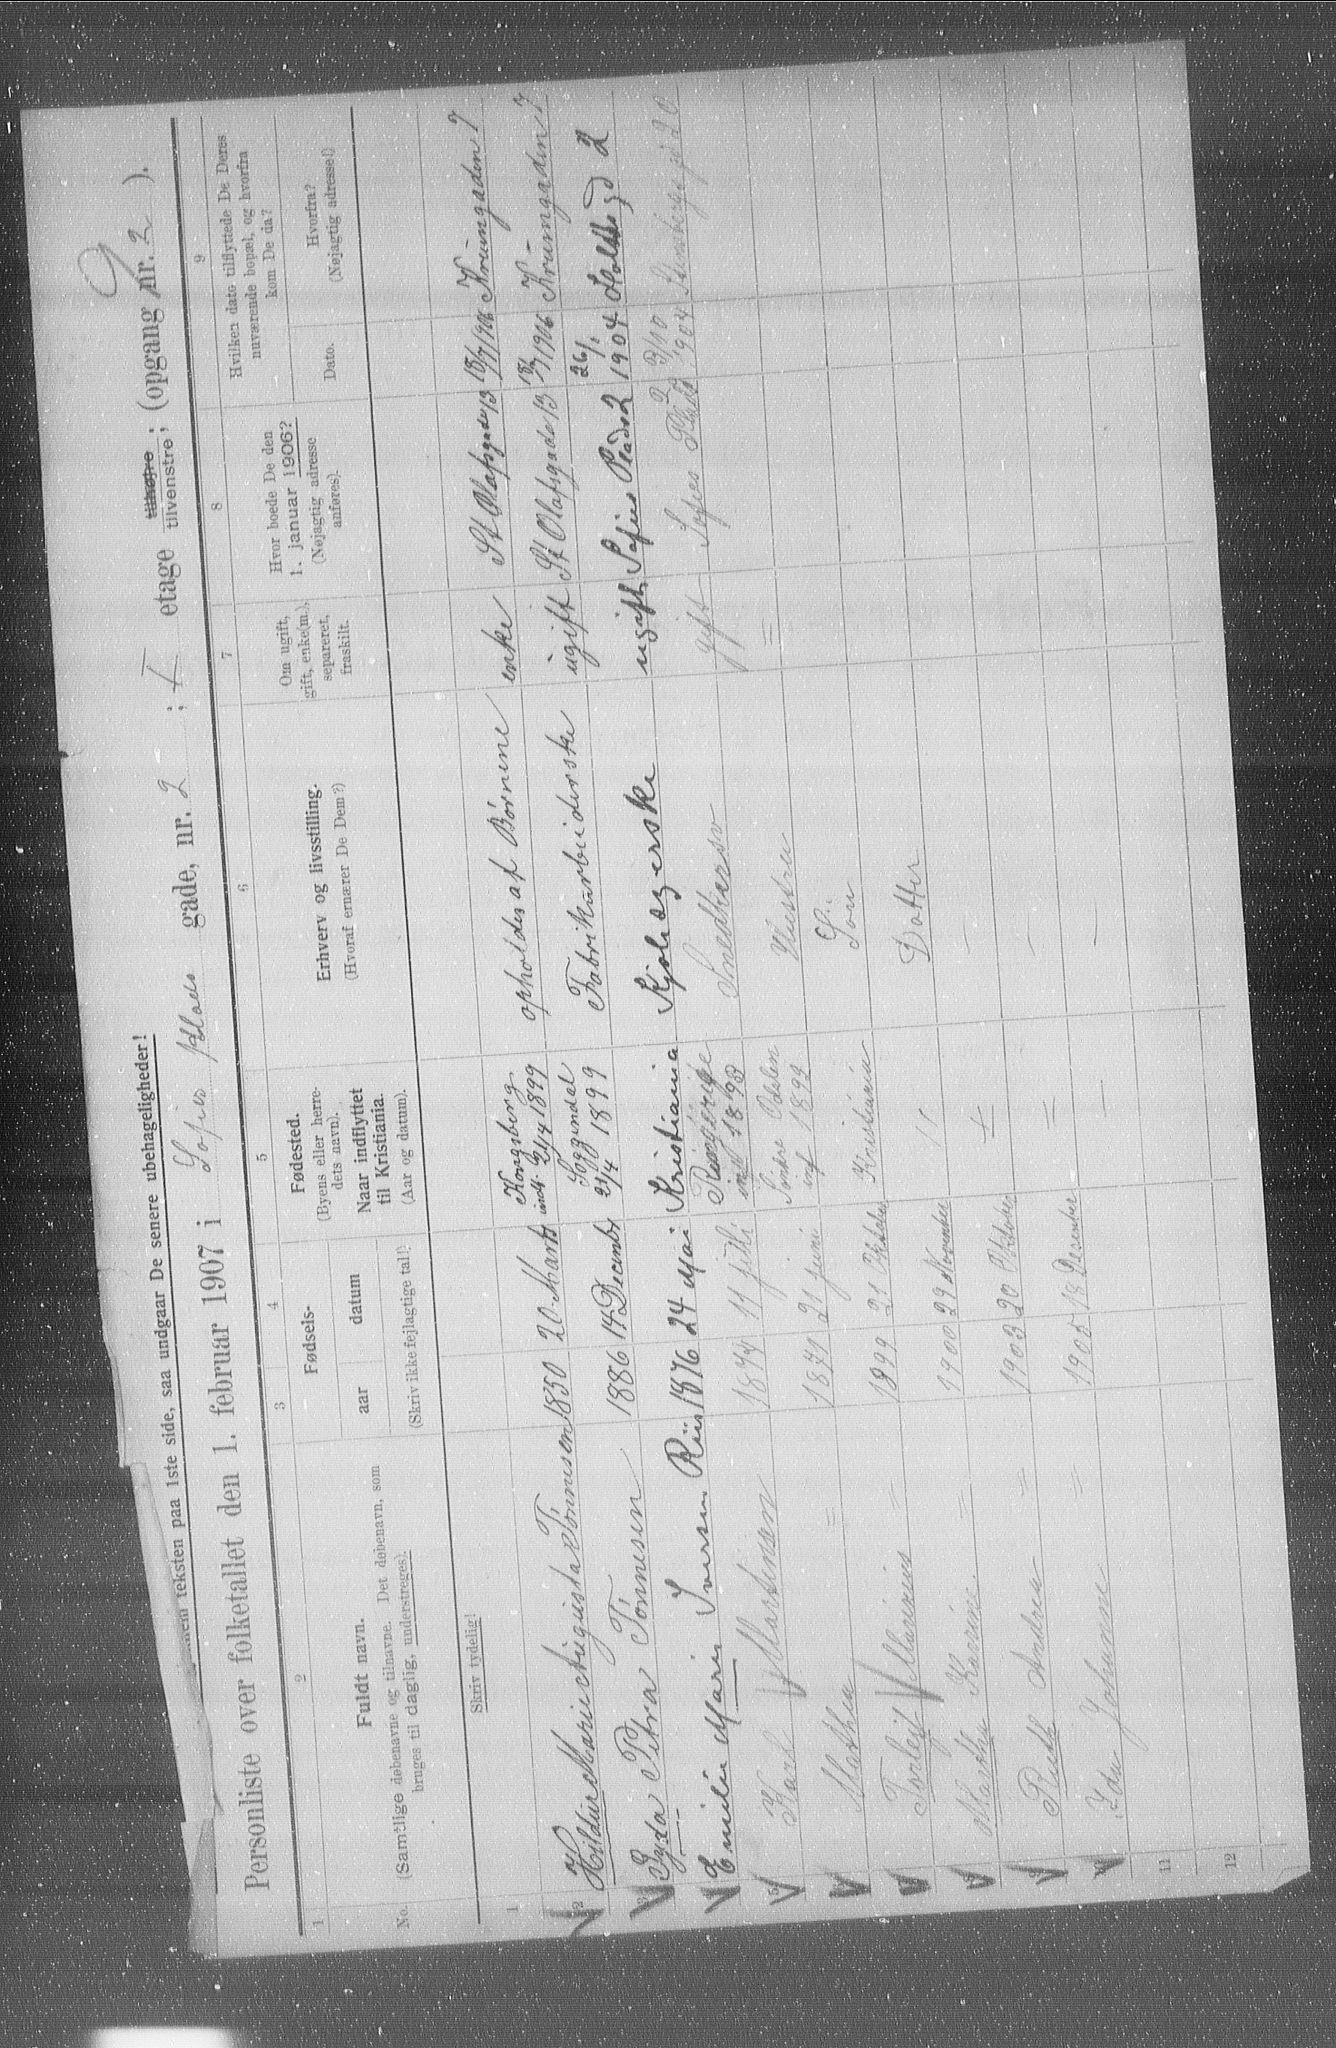 teksten paa 1ste side, saa undgaar De senere ubehageligheder!
Personliste over folketallet den 1. februar 1907 i Sofies Plads gade, nr. 2 ; I etage tilhøjre ; tilvenstre ; (opgang nr. 2 ).
1 2 3 4 5 6 7 8 9
No. Fuldt navn. (Samtlige døbenavne og tilnavne. Det døbenavn, som bruges til daglig, understreges).
Fødsels- aar datum (Skriv ikke fejlagtige tal!)
Fødested. (Byens eller herredets navn). Naar indflyttet til Kristiania. (Aar og datum).
Erhverv og livsstilling. (Hvoraf ernærer De Dem?)
Om ugift, gift, enke(m.), separeret, fraskilt.
Hvor boede De den 1. januar 1906? (Nøjagtig adresse anføres).
Hvilken dato tilflyttede De Deres nuværende bopæl, og hvorfra kom De da?
Dato. Hvorfra? (Nøjagtig adresse!)
Skriv tydelig!
1
2 Hildur Marie Augusta Tönnesen 1850 20 Marts Kongsberg indfl. 21/4 1899 opholdes af Børnene enke St Olafsgade 13 18/7 1906 Krumgaden 7
3 Gyda Petra Tönnesen 1886 14 December Soggendal 21/4 1899 Fabrikarbeiderske ugift St Olafsgade 13 18/7 1906 Krumgaden 7
Emilie Marie Iversen Riis 1876 24 Mai Kristiania Kjolesyerske ugift Sofies Plads 2 26/ 1904 2
5 Karl Martinsen 11 juli Ringerige Snedkersv gift Sofies Plads 2 1904 20
Mathea = 1871 21 juni Søndre Odalen 1899 Hustru =
Torleif Marinius = 1899 21 Oktober Kristiania Søn
Martha Karine = 1900 29 November " Datter
Ruth Andrea = 1903 20 Oktober =
Ida Johanne = 1905 18 Desember =
11
12